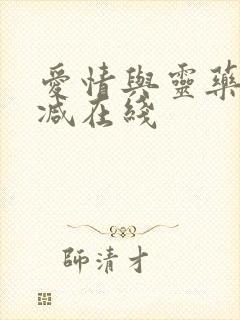 愛情與靈藥
减在綫
師清才